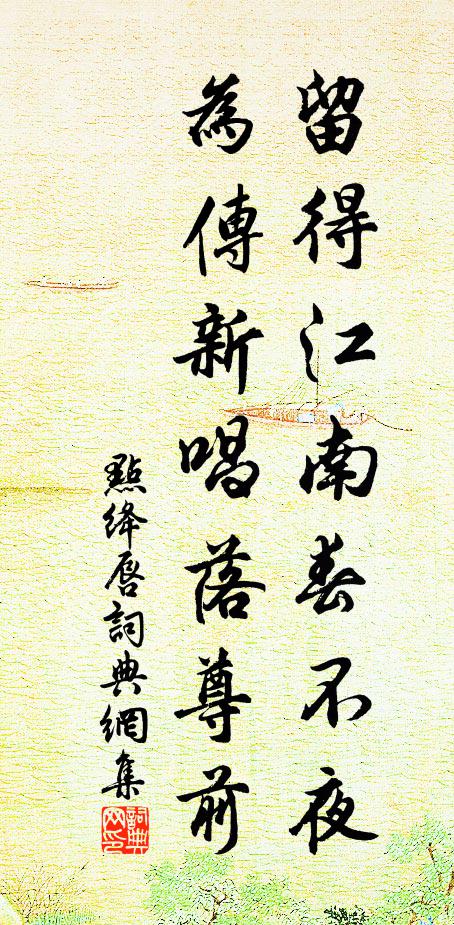 留得江南春不夜
為傳新唱落尊前
點絳唇詞典網集
詞典网印